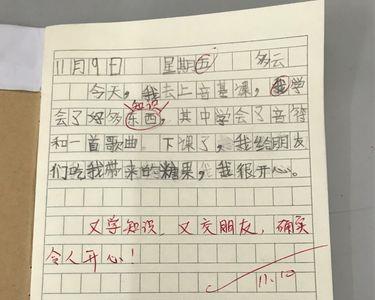 11月19日 星期五 多云
今天,我去上音基课,我学
知识
会了好多东西,其中学会了音符
和一首歌曲。下课了,我给朋友
们吃我带来的糖果,我很开心。
又学知识,又交朋友,确实
令人开心!